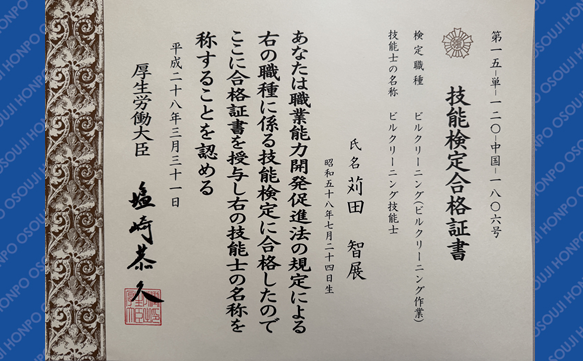 第一五-単-一二〇-中国-一八〇六号
技能検定合格証書
検定職種 ビルクリーニング(ビルクリーニング作業)
技能士の名称 ビルクリーニング技能士
氏名 苅田 智展
昭和五十八年七月二十四日生
あなたは職業能力開発促進法の規定による
右の職種に係る技能検定に合格したので
ここに合格証書を授与し右の技能士の名称を
称することを認める
平成二十八年三月三十一日
厚生労働大臣 塩崎恭久
OSOUJI HONPO